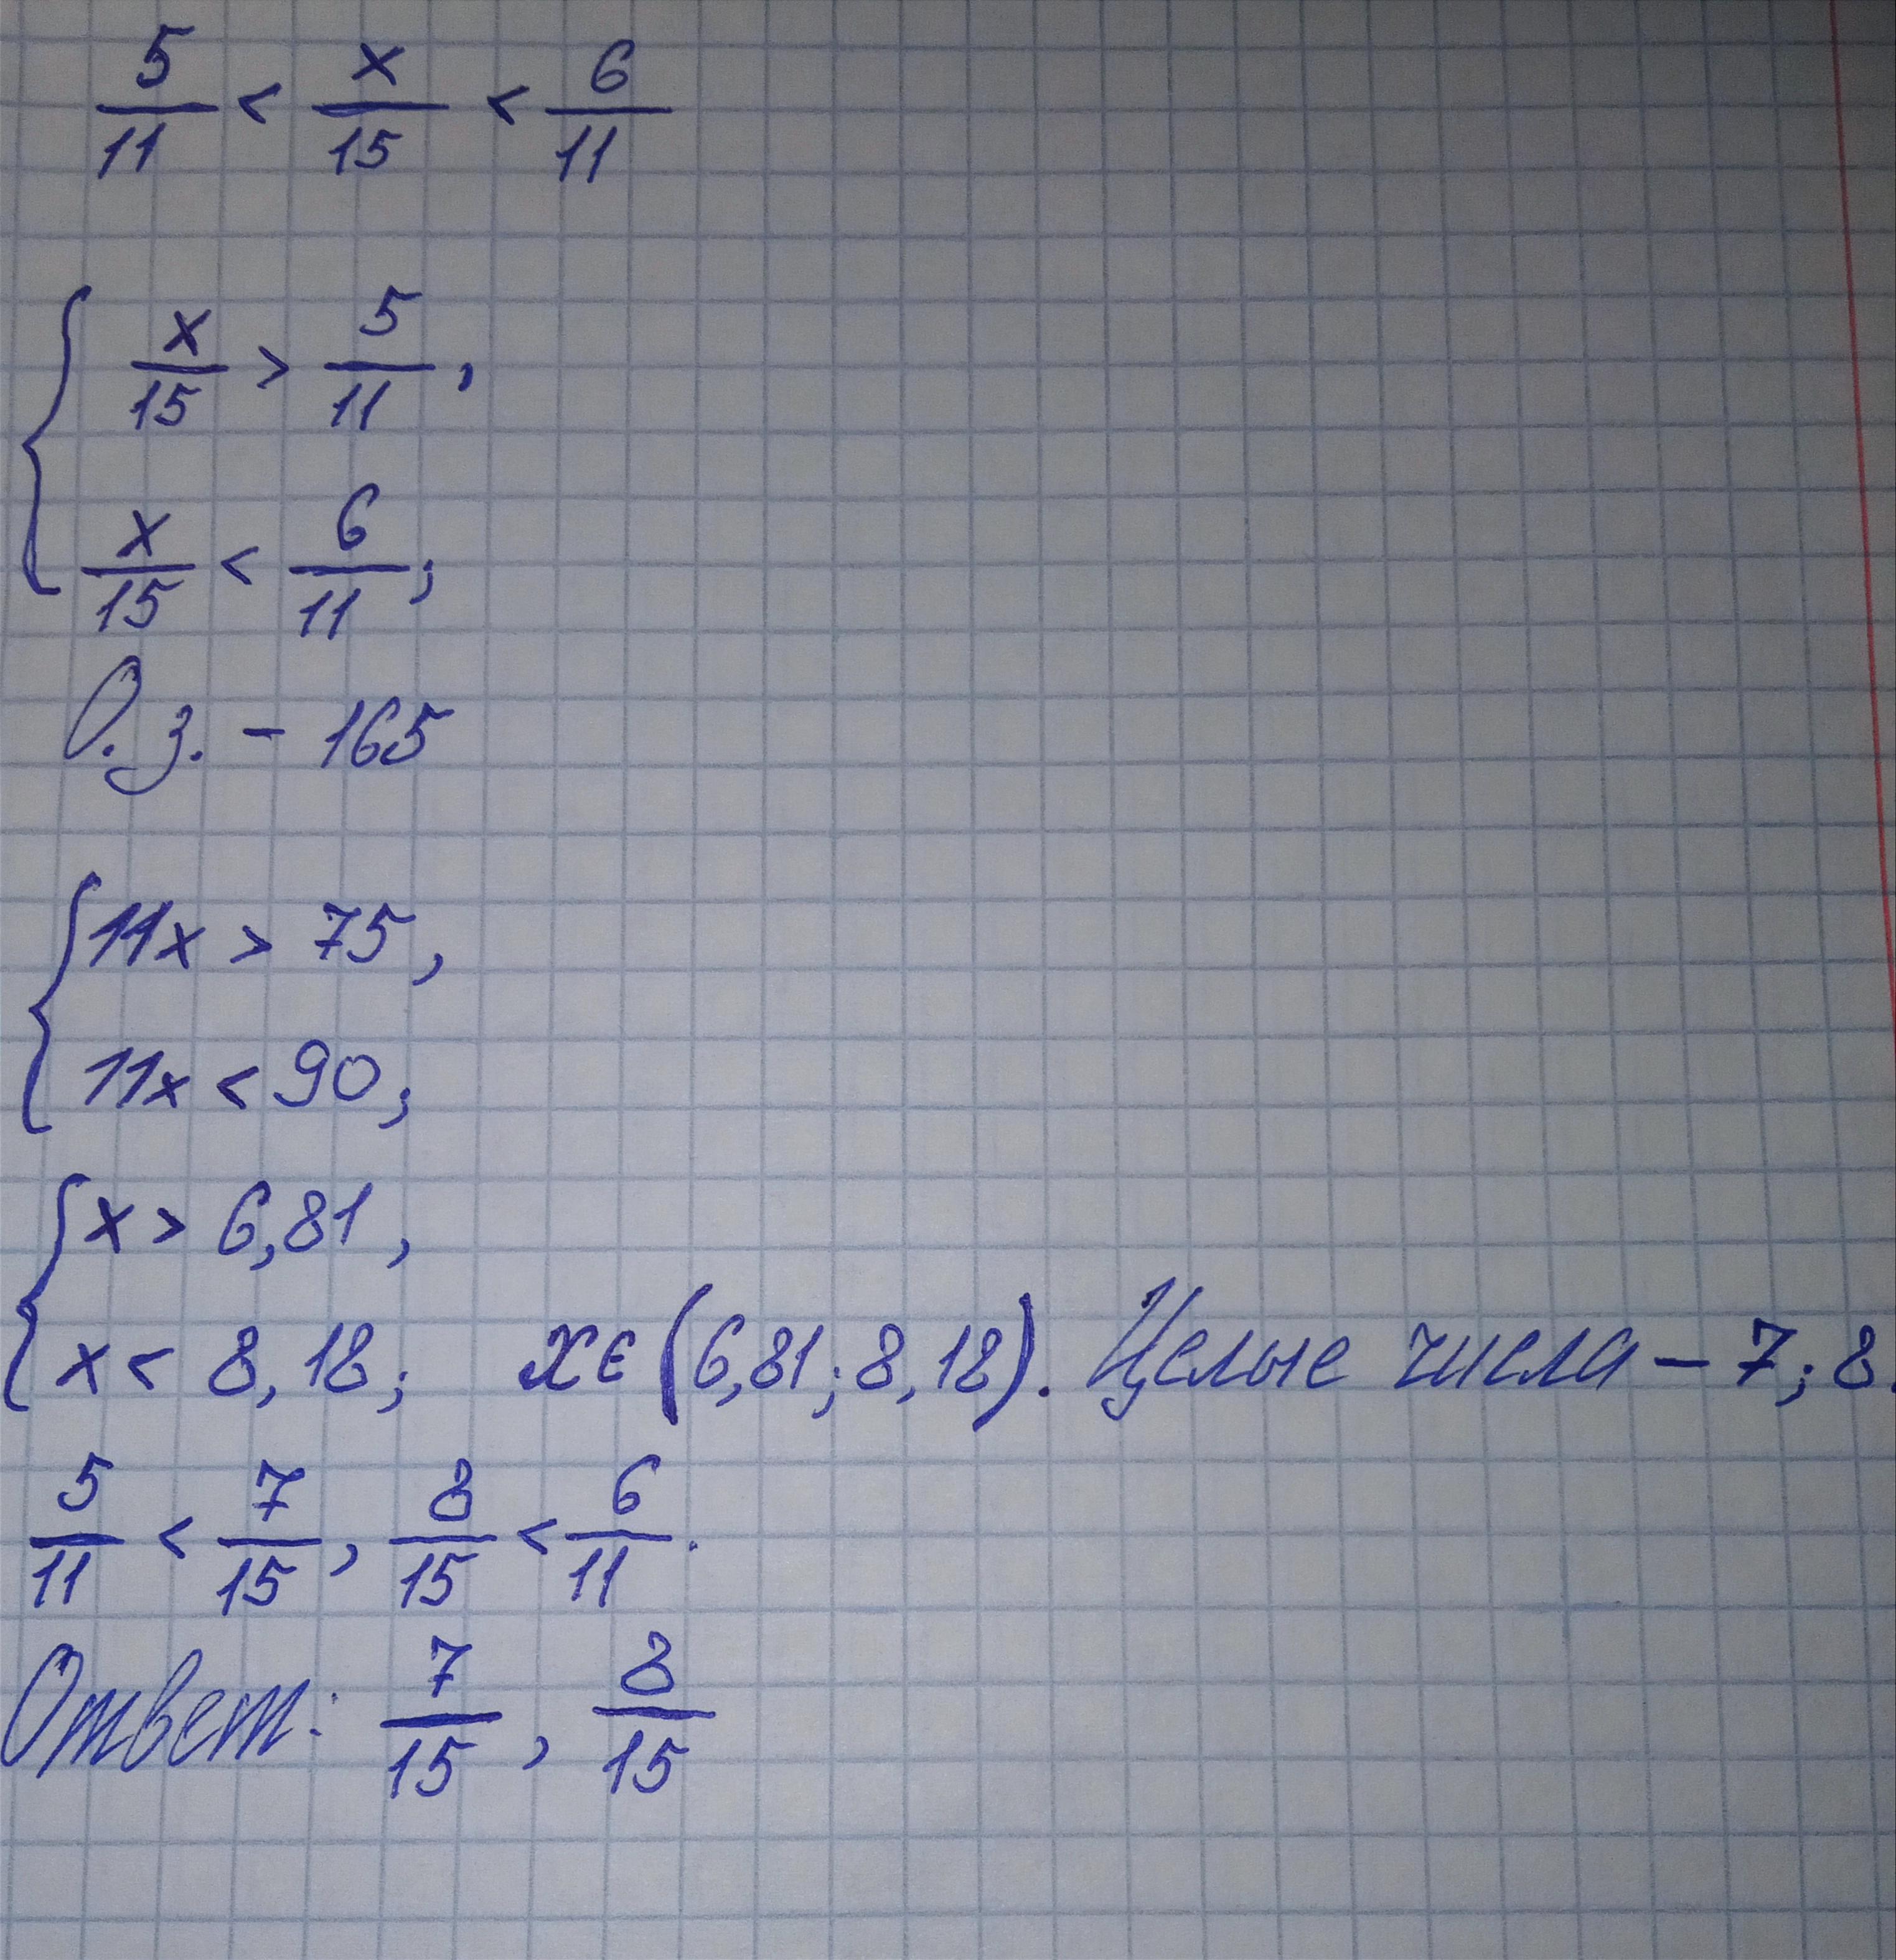 5/11 < x/15 < 6/11
{ x/15 > 5/11,
x/15 < 6/11;
О.з. - 165
{ 11x > 75,
11x < 90;
{ x > 6,81,
x < 8,18; x∈(6,81; 8,18). Целые числа – 7; 8.
5/11 < 7/15, 8/15 < 6/11.
Ответ: 7/15, 8/15